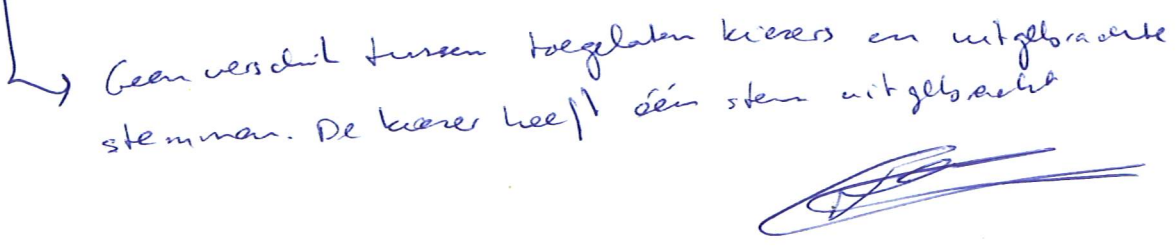 Geen verschil tussen toegelaten kiezers en uitgebrachte
stemmen. De kiezer heeft één stem uitgebracht